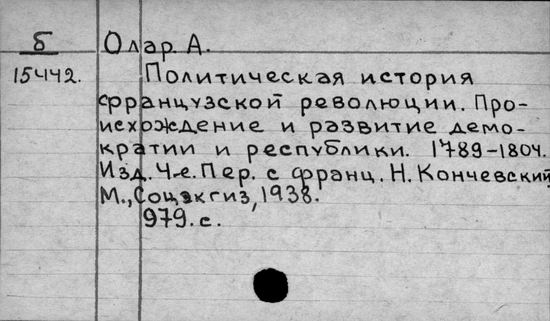 Б
15442.
Олар. А.
Политическая история
французской революции. Про-
исхождение и развитие демо-
кратии и республики. 1789-1804.
Изд. 4-е. Пер. с франц. Н. Кончевский
М., Соцэкгиз, 1938.
979. с.